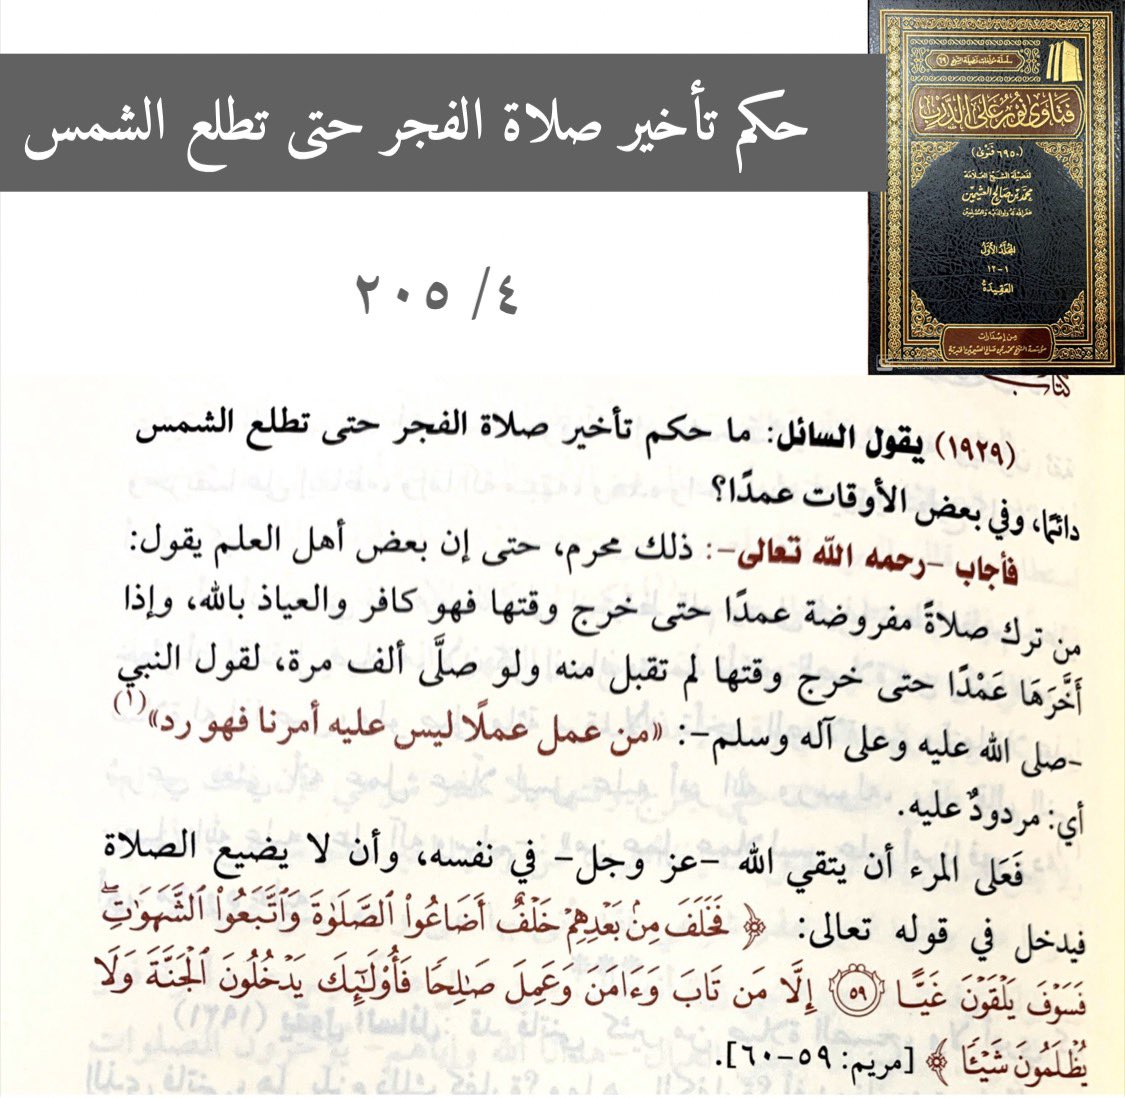 سلسلة مؤلفات فضيلة الشيخ (٦٩)
فتاوى نور على الدرب
(٦٩٥٠ فتوى)
لفضيلة الشيخ العلامة
محمد بن صالح العثيمين
غفر الله له ولوالديه وللمسلمين
المجلد الأول
١-١٢
العقيدة
من إصدارات
مؤسسة الشيخ محمد بن صالح العثيمين الخيرية
حكم تأخير صلاة الفجر حتى تطلع الشمس
٤/ ٢٠٥
كتاب
(١٩٢٩) يقول السائل: ما حكم تأخير صلاة الفجر حتى تطلع الشمس
دائمًا، وفي بعض الأوقات عمدًا؟
فأجاب -رحمه الله تعالى-: ذلك محرم، حتى إن بعض أهل العلم يقول:
من ترك صلاةً مفروضة عمدًا حتى خرج وقتها فهو كافر والعياذ بالله، وإذا
أَخَّرَهَا عَمْدًا حتى خرج وقتها لم تقبل منه ولو صلَّى ألف مرة، لقول النبي
-صلى الله عليه وعلى آله وسلم-: «من عمل عملًا ليس عليه أمرنا فهو رد»(١)
أي: مردودٌ عليه.
فَعَلى المرء أن يتقي الله -عز وجل- في نفسه، وأن لا يضيع الصلاة
فيدخل في قوله تعالى: ﴿ فَخَلَفَ مِنۢ بَعۡدِهِمۡ خَلۡفٌ أَضَاعُواْ ٱلصَّلَوٰةَ وَٱتَّبَعُواْ ٱلشَّهَوَٰتِۖ
فَسَوۡفَ يَلۡقَوۡنَ غَيًّا ٥٩ إِلَّا مَن تَابَ وَءَامَنَ وَعَمِلَ صَٰلِحٗا فَأُوْلَٰٓئِكَ يَدۡخُلُونَ ٱلۡجَنَّةَ وَلَا
يُظۡلَمُونَ شَيۡـٔٗا ﴾ [مريم: ٥٩-٦٠].